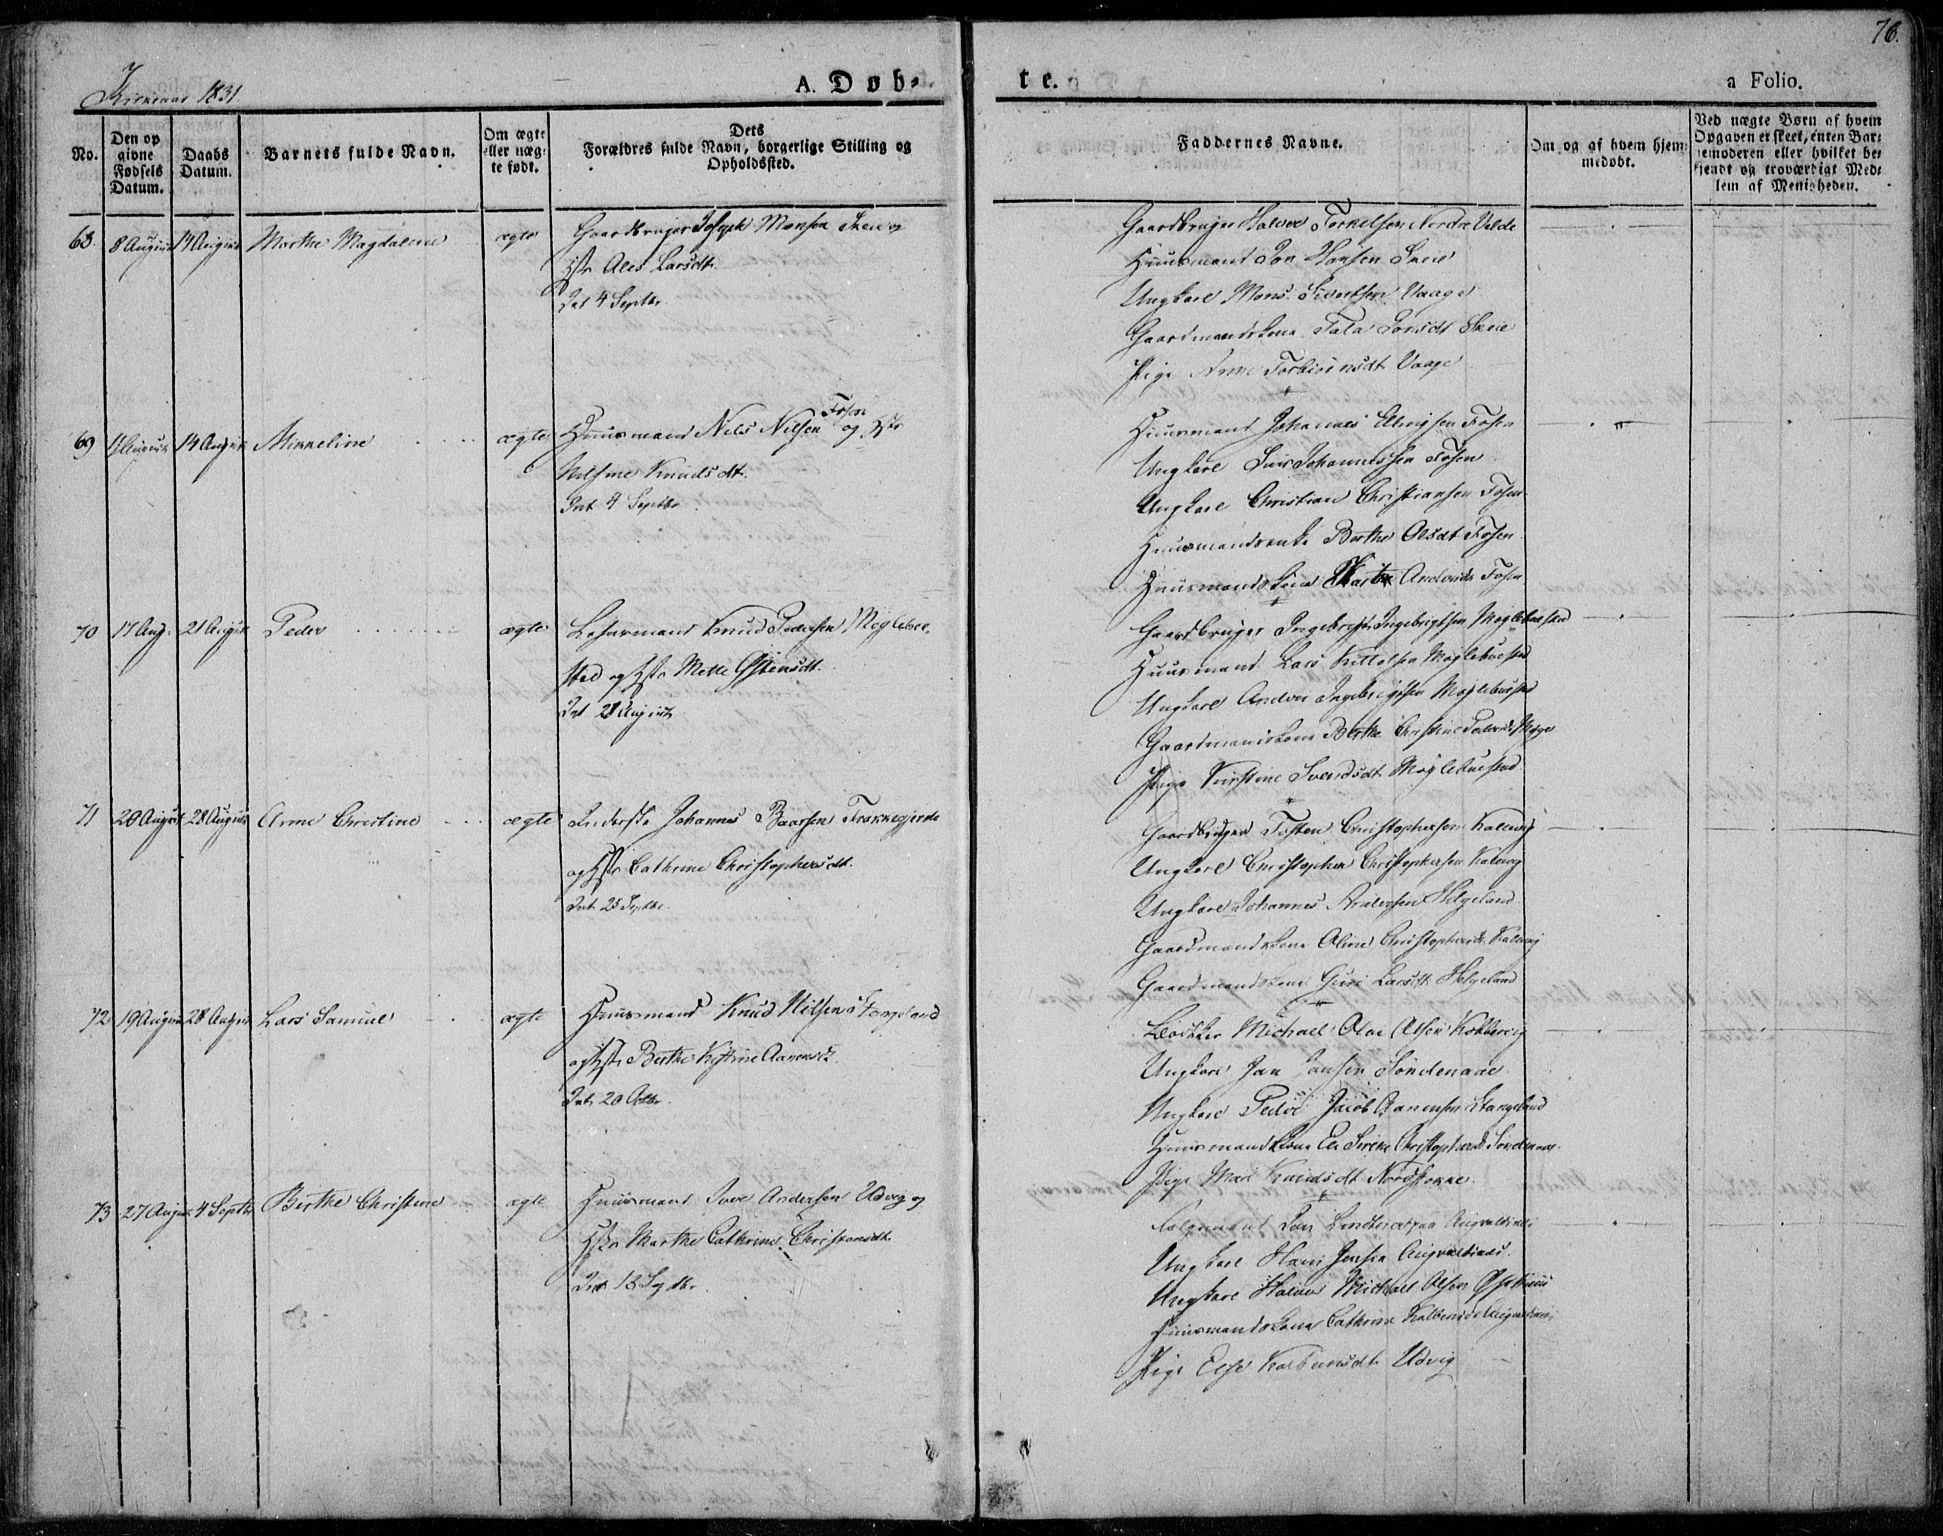 76.
Kirkeaar 1831.
A. Døb-
te.
a Folio.
No.
Den op
givne
Fødsels
Datum.
Daabs
Datum.
Barnets fulde Navn.
Om ægte
eller næg-
te født.
Dets
Forældres fulde Navn, borgerlige Stilling og
Opholdssted.
Faddernes Navne.
Om og af hvem hjem-
medøbt.
Ved nægte Børn af hvem
Opgaven er skeet, enten Bar-
nemoderen eller hvilket be-
kjendt og troværdigt Med-
lem af Menigheden.
68. 8 August 14 August Marthe Magdalene ægte
Gaardbruger Joseph Monsen Skeie og
Hstr Ales Larsdt.
Int 4 Septbr
Gaardbruger Halvor Torkelsen Nordre Velde
Huusmand Jon Hansen Skeie
Ungkarl Mons Sivertsen Vaage
Gaardmandskone Tala Larsdt Skeie
Pige Anne Torbiørnsdt Vaage
69 11 August 14 August Mikkeline ægte
Huusmand Nils Nilsen Fosen og Hstr
Nilsine Knudsdt.
Int 4 Septbr
Huusmand Johannes Fosen
Ungkarl Johannessen Fosen
Ungkarl Christian Christiansen Fosen
Huusmandsenke Berthe Olsdt Fosen
Huusmandskone Marthe Andersdt Fosen
70 17 Aug. 21 August Peder ægte
Lehnsmand Knud Pedersen Møglebue-
sted og Hstr Mette Østensdt.
Int 28 August
Gaardbruger Ingebrigt Ingebrigtsen Møglebuested
Huusmand Lars Kittelsen Møglebuested
Ungkarl Anders Ingebrigtsen Møglebuested
Gaardmandskone Berthe Christine Pedersdt Møgle
Pige Kirstine Svendsdt Møglebuested
71 20 August 28 August Anne Christine ægte
Inderste Johannes Baarsen Frakkegjerde
og Hstr Cathrine Christophersdt.
Int 25 Septbr.
Gaardbruger Tosten Christophersen Kalveig
Ungkarl Christopher Christophersen Kalveig
Ungkarl Johannes Andersen Helgeland
Gaardmandskone Oline Christophersdt Kalveig
Gaardmandskone Guri Larsdt Helgeland
72 19 August 28 August Lars Samuel ægte
Huusmand Knud Nilsen Stangeland
og Hstr Berthe Kistine Aanensdt
Int 20 Octbr.
Bødker Michael Olae Olsen Kobbervig
Ungkarl Jan Jansen Søndenaae
Ungkarl Peder Jacob Aanensen Stangeland
Huusmandskone Christophersdt Søndenaae
Pige Mari Knudsdt Nordstokke
73 27 August 4 Septbr Berthe Christine ægte
Huusmand Andersen Udvig og
Hstr Marthe Cathrine Christensdt.
Int 18 Septbr.
Jan paa Augvaldsnæs
Ungkarl Hans Jensen Augvaldsnæs.
Ungkarl Halvor Michael Olsen Østhuus
Huusmandskone Cathrine Augvaldsnæs
Pige Else Kolbensdt Udvig